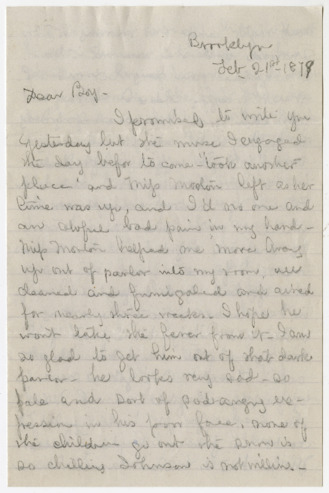 Brooklyn
Feb. 21st 1879
Dear Boy -
I promised to write you
yesterday but the nurse I engaged
the day befor to come - 'took another
place' and Miss Morton left as her
time was up, and I'd no one and
an awful bad pain in my hand -
Miss Morton helped me move
up out of parlor into my room, we
cleaned and fumigated and aired
for nearly three weeks. I hope he
wont take the fever from it - I am
so glad to get him out of that dark
parlor - he looks very sad - so
pale and sort of sad-angry ex-
pression in his poor face, none of
the children go out the snow is
so chilling Johnson is not